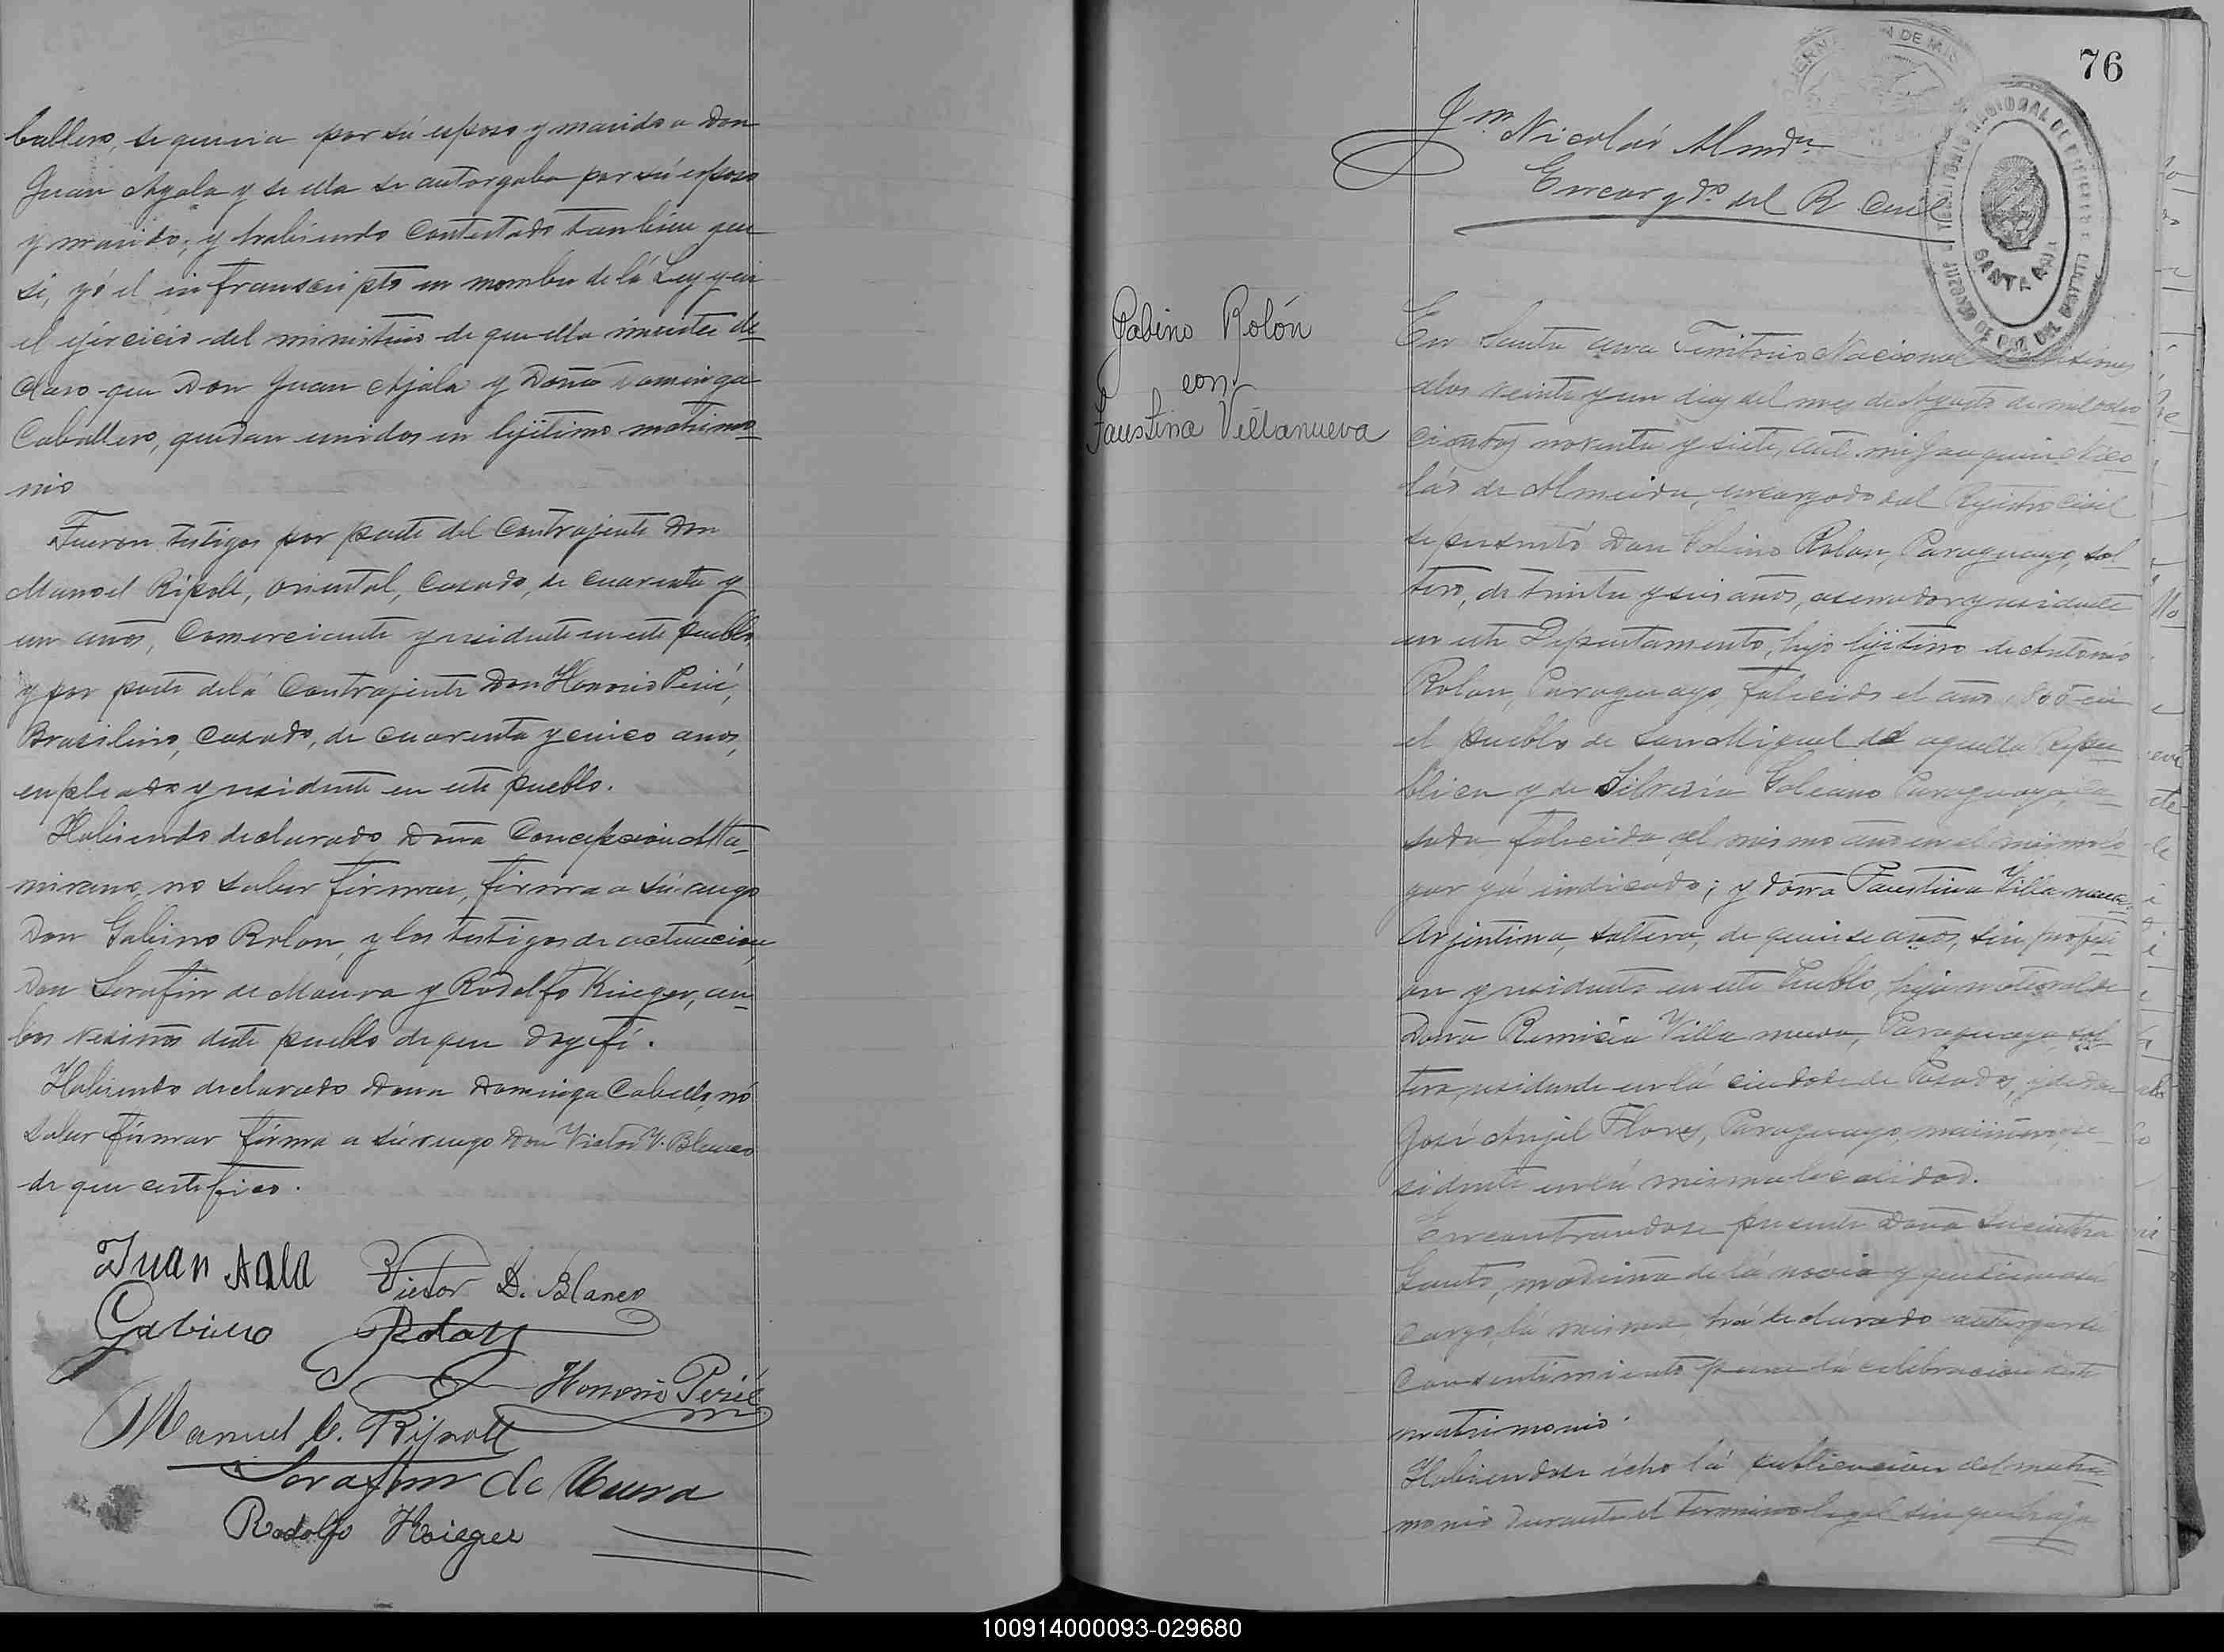 ballero, se queria por sú esposo y marido a Don
Juan Ayala y se ella se autorgaba por sú esposo
y marido; y habiendo contestado tambien que
si, yó el infranscripto en nombre de lá Ley y en
el ejercicio del ministerio de que ella inviste de
claro que Don Juan Ajala y Doña Dominga
Caballero, quedan unidos en lejitimo matrimo
nio
Fueron testigos por parte del Contrajente Don
Manoel Ripoll, oriental, casado, de cuarenta y
un años, Comerciante y residente en este pueblo,
y por parte de lá Contrajente Don Honorio Perié,
Brasilero, casado, de cuarenta y cinco anos,
enpleado y residente en este pueblo.
Habiendo declarado Doña Concepcion Alta
mirano, no saber firmar, firma a sú ruego
Don Gabino Rolon, y los testigos de actuacion,
Don Serafin de Moura y Rodolfo Krieger, an
bos vesinos deste pueblo de que doy fé.
Habiendo declarado Dona Dominga Caballo, nó
saber firmar firma a sú ruego Don Victor V. Blanco
de que certefico.
Juan Aala Victor D. Blanco
Gabino Rolon
Honorio Perié
Manuel C. Ripoll
Serafin de Moura
Rodolfo Krieger
76
Jm Nicolás Almda
Encargdo del R Civil
SANTA ANA
Gabino Rolón
con
Faustina Villanueva
En Santa Ana Territorio Nacional de Misiones
alos veinte y un dias del mes de Agosto de mil ocho
cientos noventa y siete, ante mi Joaquin Nico
lás de Almeida, encargado del Rejistro Civil
se presentó Don Gabino Rolon, Paraguayo, sol
tero, de trinta y seis anos, aserrador y residente
en este Departamento, hijo lejitimo de Antonio
Rolon, Paraguayo, falecido el año en
el pueblo de San Miguel de aquella Repu
blica y de Silvesia Galeano Paraguaya, ca
sada falecida el mismo ano en el mismo lu
gar yá indicado; y doña Faustina Villa nueva,
Arjentina, soltera, de quinse años, sin profesi
on y residente en este Pueblo, hija natural de
Doña Remisia Villa nueva, Paraguaya, sol
tera, residente en lá ciudad de Posadas, y de don
José Anjel Flores, Paraguayo, marinero, re
sidente en lá misma localidad.
Encontrandose presente Doña
Gauto, madrina de lá novia y que tiene á su
cargo lá misma, há declarado autorgar su
consentimiento para lá celebracion deste
matrimonio.
Habiendose écho lá publicacion del matri
monio durante el termino legal sin que haja
100914000093-029680